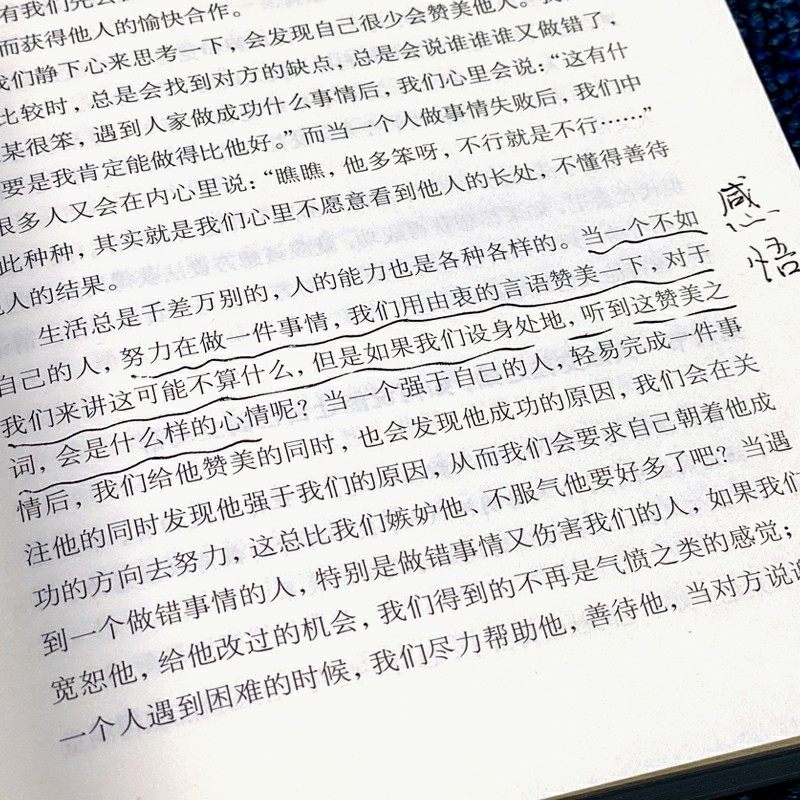 有我们先
而获得他人的愉快合作。
我们静下心来思考一下，会发现自己很少会赞美他人。
比较时，总是会找到对方的缺点，总是会说谁谁谁又做错了，
某很笨，遇到人家做成功什么事情后，我们心里会说：“这有什
要是我肯定能做得比他好。”而当一个人做事情失败后，我们中
很多人又会在内心里说：“瞧瞧，他多笨呀，不行就是不行……”
此种种，其实就是我们心里不愿意看到他人的长处，不懂得善待
他人的结果。
生活总是千差万别的，人的能力也是各种各样的。当一个不如
自己的人，努力在做一件事情，我们用由衷的言语赞美一下，对于
我们来讲这可能不算什么，但是如果我们设身处地，听到这赞美之
词，会是什么样的心情呢？当一个强于自己的人，轻易完成一件事
情后，我们给他赞美的同时，也会发现他成功的原因，我们会在关
注他的同时发现他强于我们的原因，从而我们会要求自己朝着他成
功的方向去努力，这总比我们嫉妒他、不服气他要好多了吧？当遇
到一个做错事情的人，特别是做错事情又伤害我们的人，如果我们
宽恕他，给他改过的机会，我们得到的不再是气愤之类的感觉；
一个人遇到困难的时候，我们尽力帮助他，善待他，当对方说
感悟